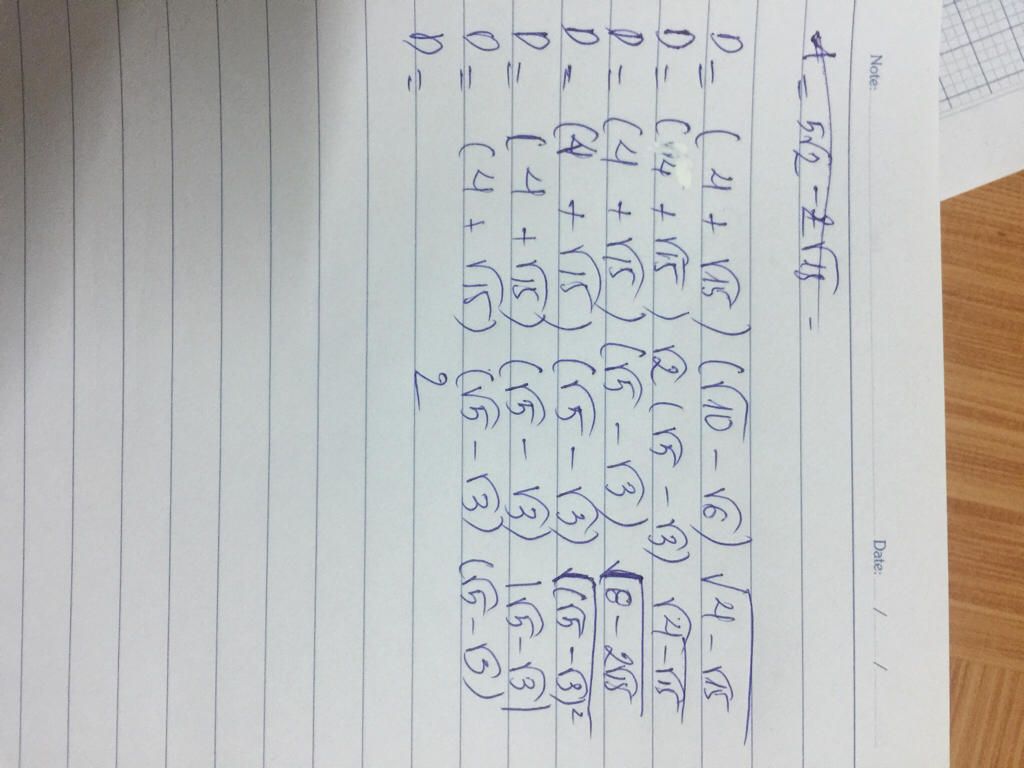 Note: Date: / /
D = (4 + √15) (√10 − √6) √(4 − √15)
D = (4 + √15) √2 (√5 − √3) √(4 − √15)
D = (4 + √15) (√5 − √3) √(8 − 2√15)
D = (4 + √15) (√5 − √3) √((√5 − √3)²)
D = (4 + √15) (√5 − √3) |√5 − √3|
D = (4 + √15) (√5 − √3) (√5 − √3)
D = 2